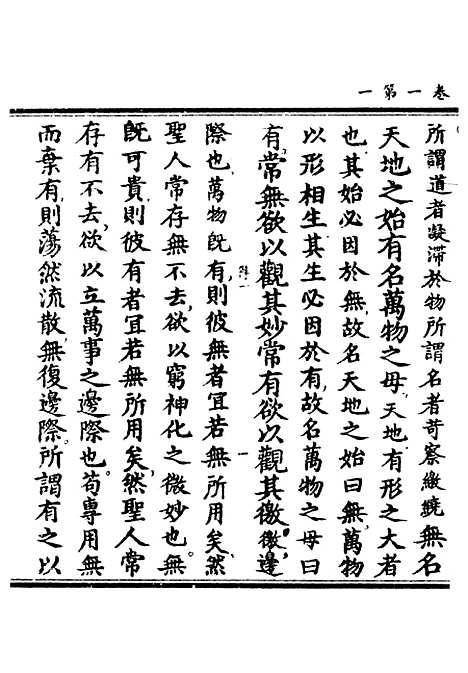 卷一第一
所謂道者凝滯於物所謂名者苛察繳繞無名
天地之始有名萬物之母天地有形之大者
也其始必因於無故名天地之始曰無萬物
以形相生其生必因於有故名萬物之母曰
有常無欲以觀其妙常有欲以觀其徼徼邊
際也萬物既有則彼無者宜若無所用矣然
聖人常存無不去欲以窮神化之微妙也無
既可貴則彼有者宜若無所用矣然聖人常
存有不去欲以立萬事之邊際也苟專用無
而棄有則蕩然流散無復邊際所謂有之以